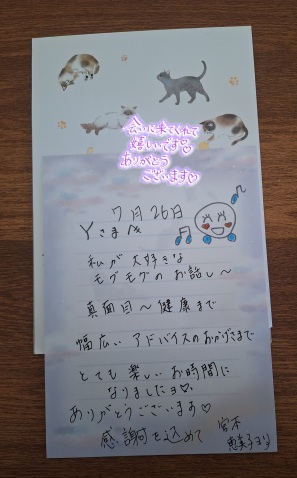 会いに来てくれて
嬉しいです♡
ありがとう
ございます♡
7月26日
Yさまへ
私が大好きな
モグモグのお話し〜
真面目〜健康まで
幅広いアドバイスのおかげさまで
とても楽しいお時間に
なりましたヨ♡
ありがとうございます♡
感謝を込めて
宮本
恵美子ヨリ